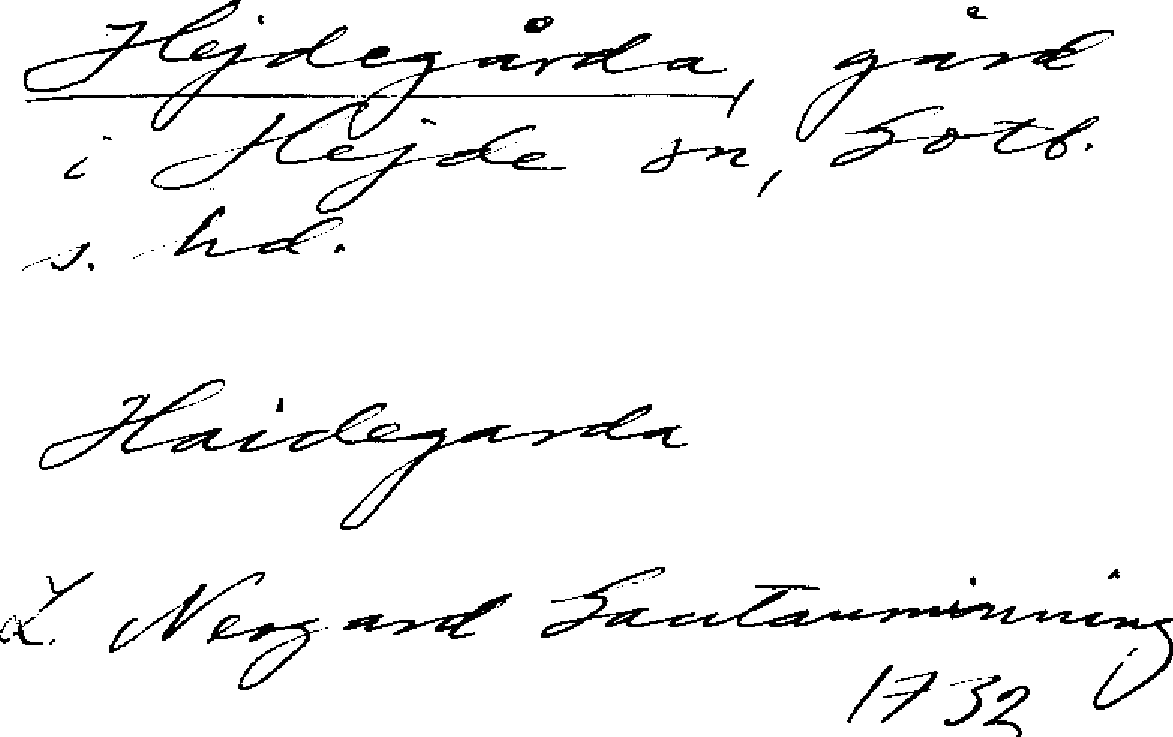 Hejdegårda, gård
i Hejde sn, Gotl.
s. hd.
Haidegarda
L. Neogard Gautauminning
1732